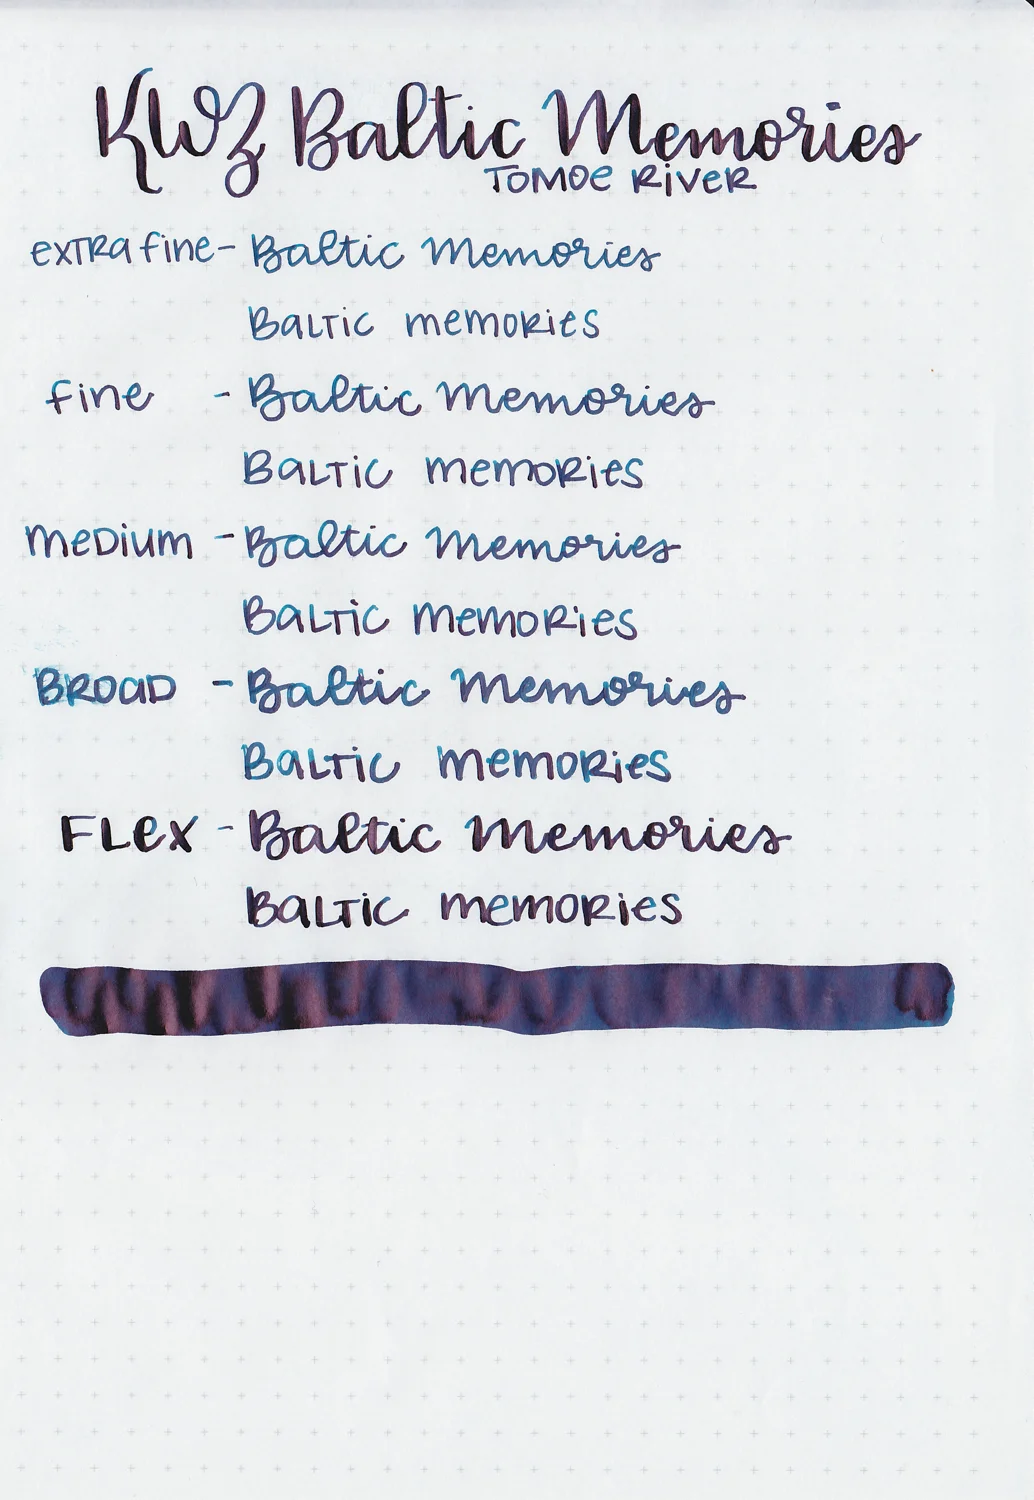 KWZ Baltic Memories
TOMOE RIVER
extra fine - Baltic Memories
Baltic memories
fine - Baltic Memories
Baltic memories
medium - Baltic Memories
Baltic memories
Broad - Baltic Memories
Baltic memories
Flex - Baltic Memories
Baltic memories